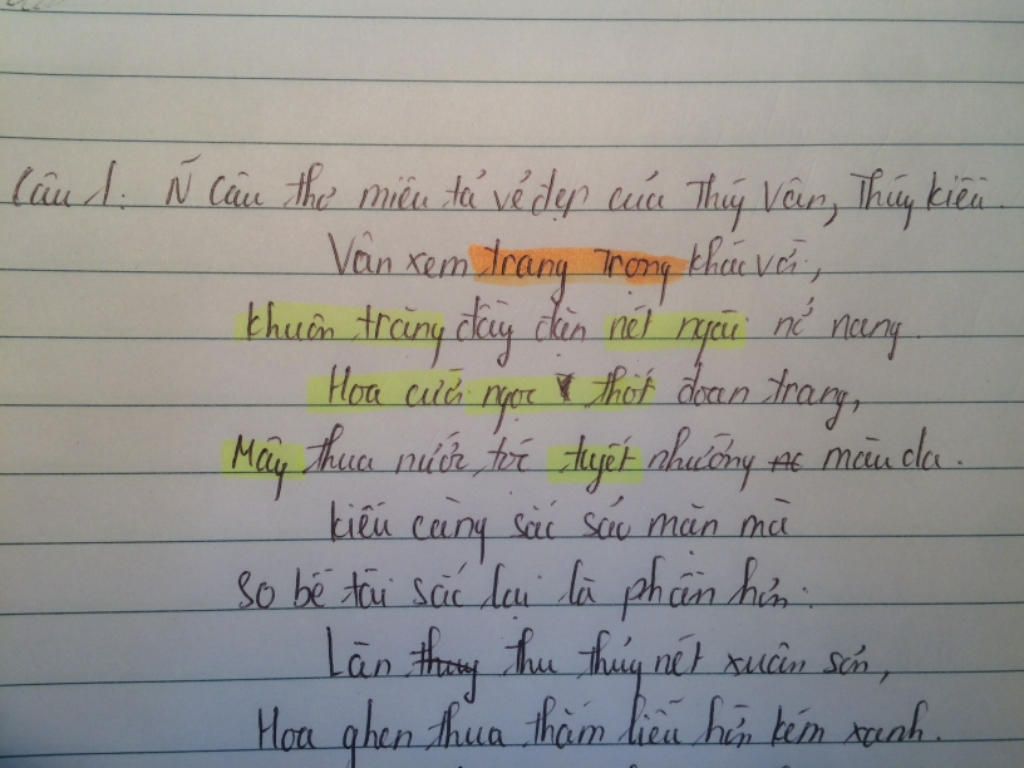 Câu 1: Ñ câu thơ miêu tả vẻ đẹp của Thúy Vân, Thúy Kiều.
Vân xem trang trọng khác vời,
Khuôn trăng đầy đặn nét ngài nở nang.
Hoa cười ngọc thốt đoan trang,
Mây thua nước tóc tuyết nhường màu da.
Kiều càng sắc sảo mặn mà
So bề tài sắc lại là phần hơn:
Làn thu thủy nét xuân sơn,
Hoa ghen thua thắm liễu hờn kém xanh.